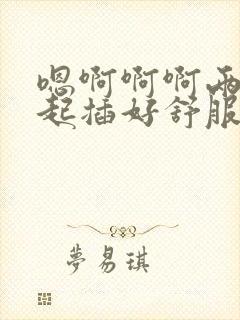 嗯啊啊啊两
起插好舒服
夢易琪